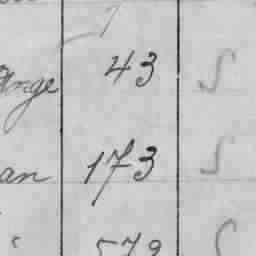 ange 43 S
an 173 S
579 S